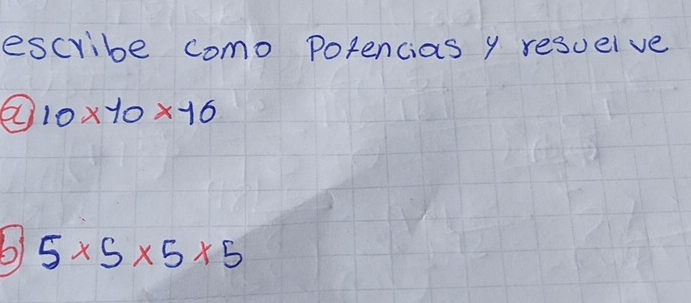 escribe como Potencias y resuelve
a) 10 x 10 x 10
b) 5 x 5 x 5 x 5